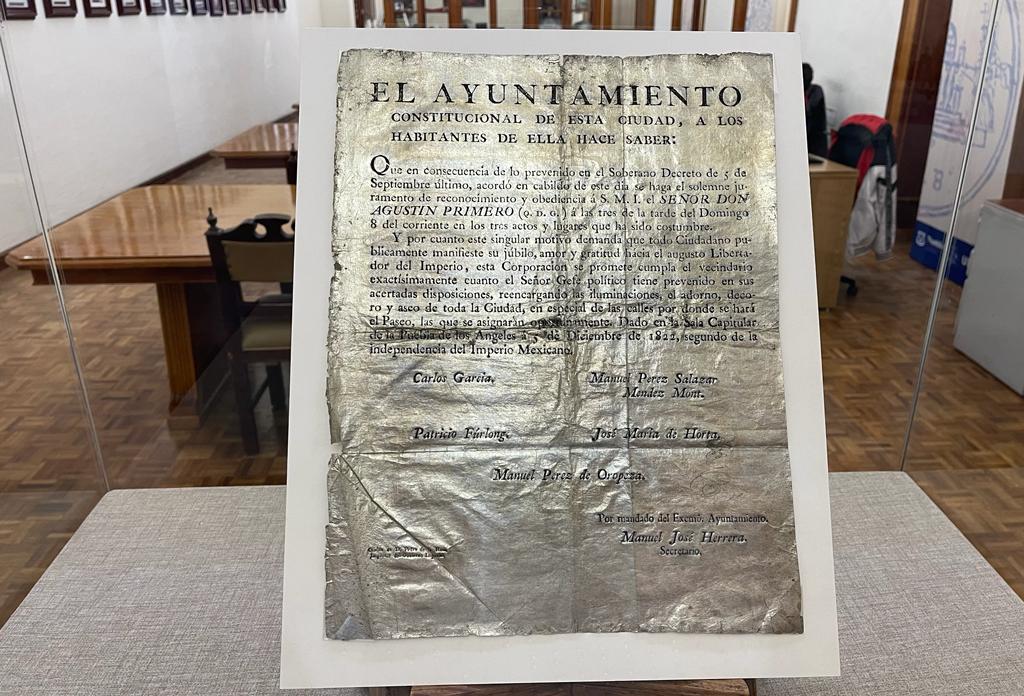 EL AYUNTAMIENTO
CONSTITUCIONAL DE ESTA CIUDAD, A LOS
HABITANTES DE ELLA HACE SABER:
Que en consecuencia de lo prevenido en el Soberano Decreto de 5 de
Septiembre último, acordó en cabildo de este dia se haga el solemne ju-
ramento de reconocimiento y obediencia á S. M. I. el SEÑOR DON
AGUSTIN PRIMERO (Q. D. G.) á las tres de la tarde del Domingo
8 del corriente en los tres actos y lugares que ha sido costumbre.
Y por cuanto este singular motivo demanda que todo Ciudadano pu-
blicamente manifieste su júbilo, amor y gratitud hácia el augusto Liberta-
dor del Imperio, esta Corporacion se promete cumpla el vecindario
exactísimamente cuanto el Señor Gefe político tiene prevenido en sus
acertadas disposiciones, reencargando las iluminaciones, el adorno, deco-
ro y aseo de toda la Ciudad, en especial de las calles por donde se hará
el Paseo, las que se asignarán oportunamente. Dado en la Sala Capitular
de la Puebla de los Angeles á 5 de Diciembre de 1822, segundo de la
independencia del Imperio Mexicano.
Carlos Garcia. Manuel Perez Salazar
Mendez Mont.
Patricio Fúrlong. José Maria de Horta.
Manuel Perez de Oropeza.
Por mandado del Exemô. Ayuntamiento.
Manuel José Herrera.
Secretario.